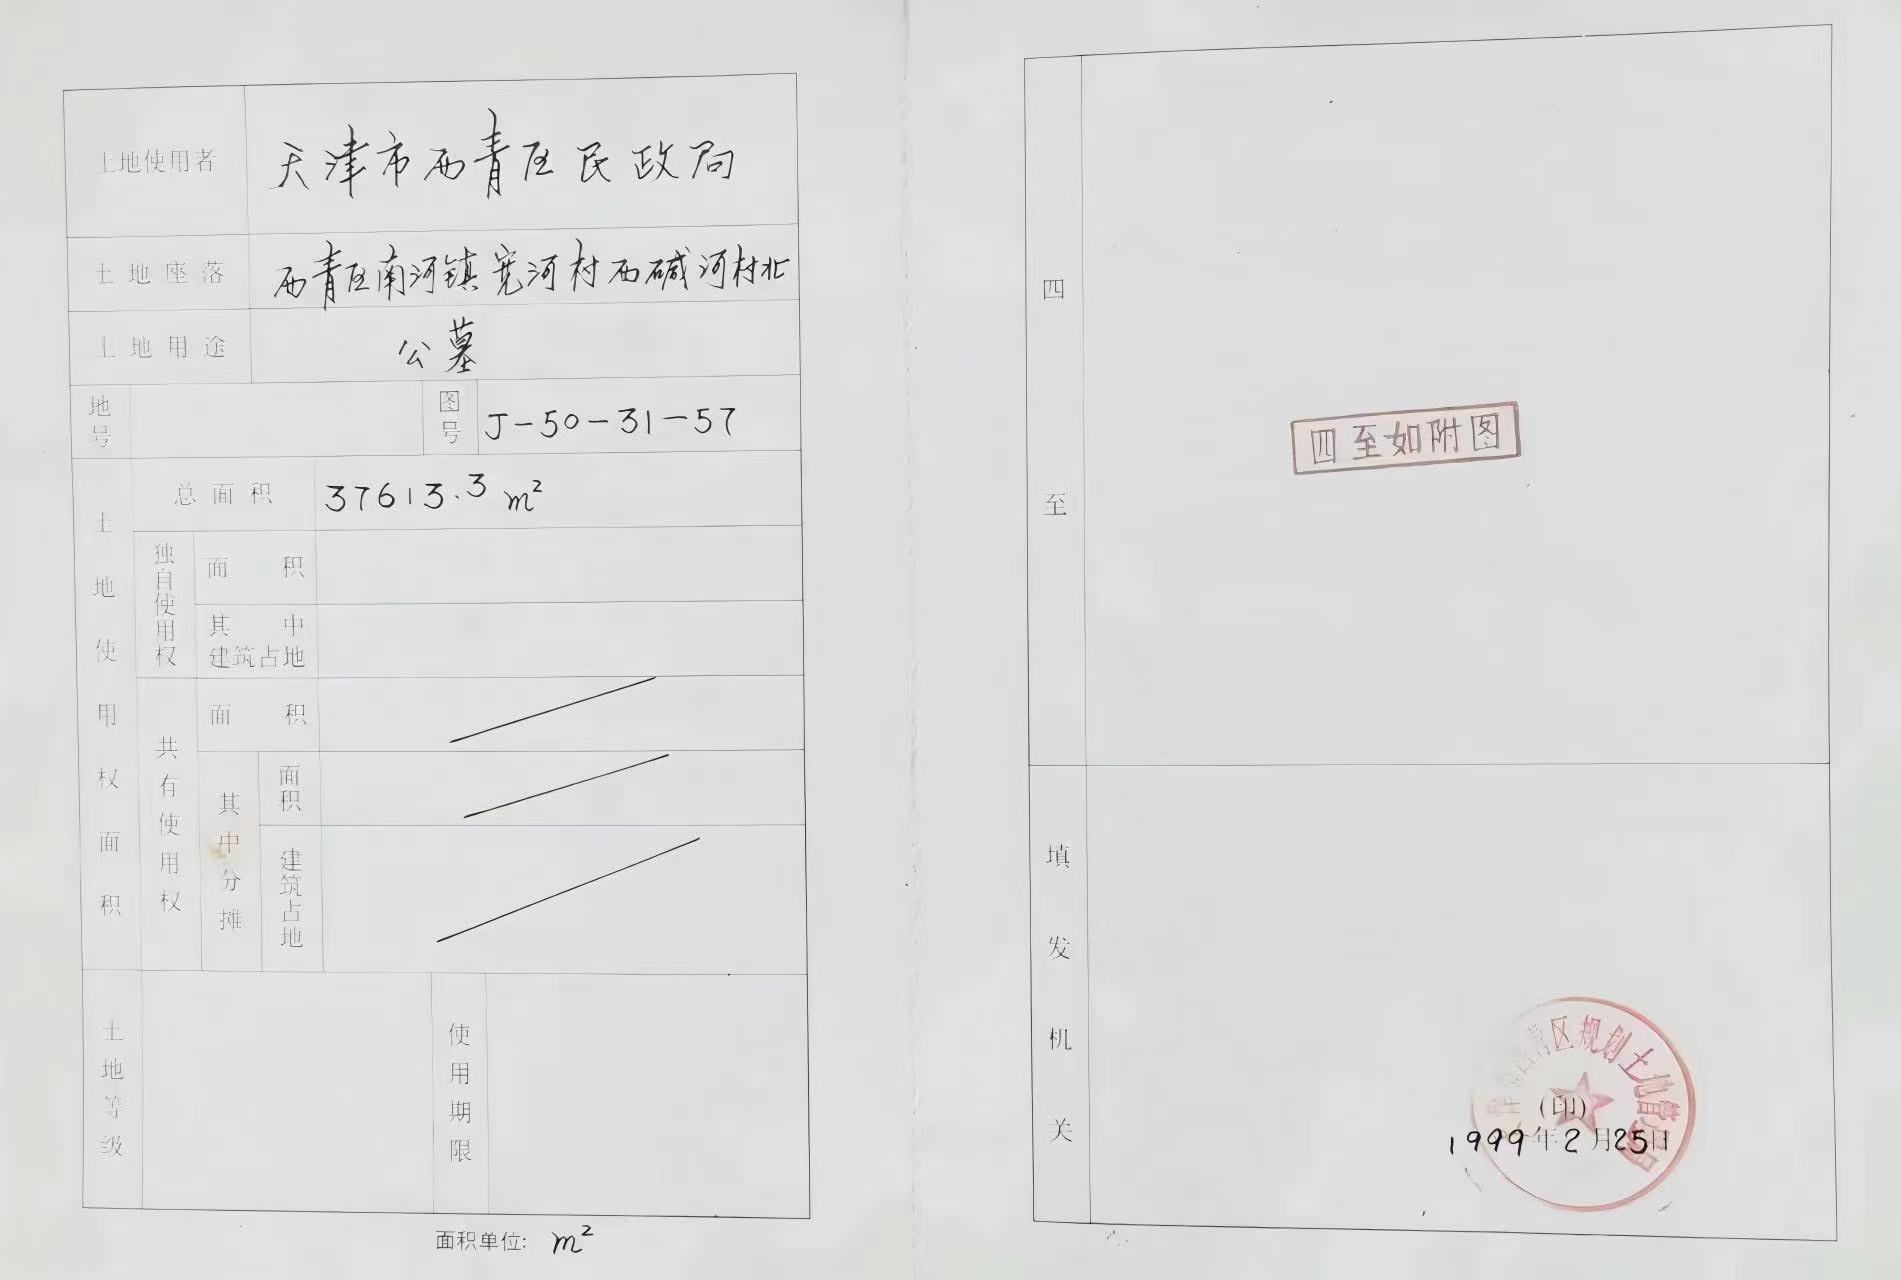 土地使用者 天津市西青区民政局
土地座落 西青区南河镇宽河村西碱河村北
土地用途 公墓
地号 图号 J-50-31-57
土地使用权面积
总面积 37613.3 m²
独自使用权
面积
其中建筑占地
共有使用权
面积
其中分摊
面积
建筑占地
土地等级 使用期限
面积单位: m²
四至
四至如附图
填发机关
青区规划土地管理局
(印)
1999年2月25日